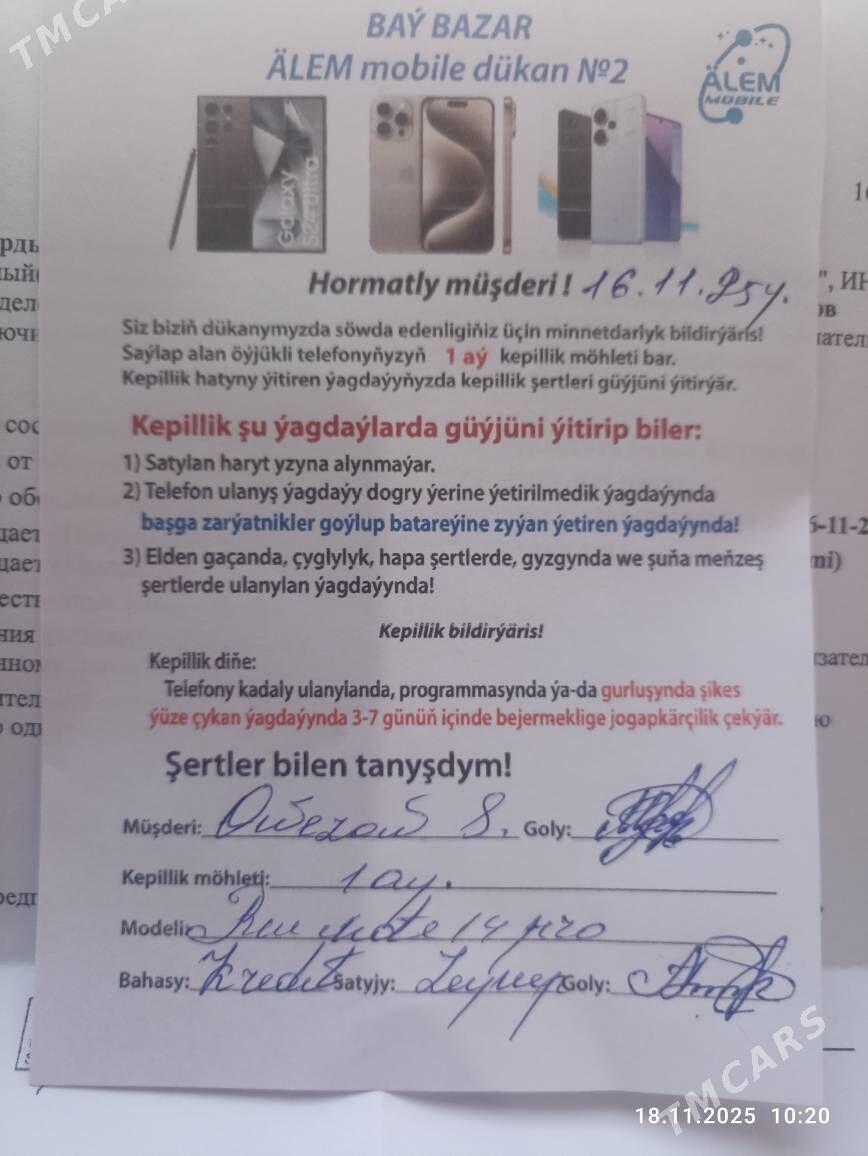 TMCARS
BAÝ BAZAR
ÄLEM mobile dükan №2
ÄLEM
MOBILE
Galaxy
S24 ultra
Hormatly müşderi! 16.11.25ý.
Siz biziň dükanymyzda söwda edenligiňiz üçin minnetdarlyk bildirýäris!
Saýlap alan öýjükli telefonyňyzyň 1 aý kepillik möhleti bar.
Kepillik hatyny ýitiren ýagdaýyňyzda kepillik şertleri güýjüni ýitirýär.
Kepillik şu ýagdaýlarda güýjüni ýitirip biler:
1) Satylan haryt yzyna alynmaýar.
2) Telefon ulanyş ýagdaýy dogry ýerine ýetirilmedik ýagdaýynda
başga zarýatnikler goýlup batareýine zyýan ýetiren ýagdaýynda!
3) Elden gaçanda, çyglylyk, hapa şertlerde, gyzgynda we şuňa meňzeş
şertlerde ulanylan ýagdaýynda!
Kepillik bildirýäris!
Kepillik diňe:
Telefony kadaly ulanylanda, programmasynda ýa-da gurluşynda şikes
ýüze çykan ýagdaýynda 3-7 günüň içinde bejermeklige jogapkärçilik çekýär.
Şertler bilen tanyşdym!
Müşderi: S. Goly:
Kepillik möhleti: 1 aý.
Modeli: note 14 pro
Bahasy: Kredit Satyjy: Goly:
TMCARS
18.11.2025 10:20